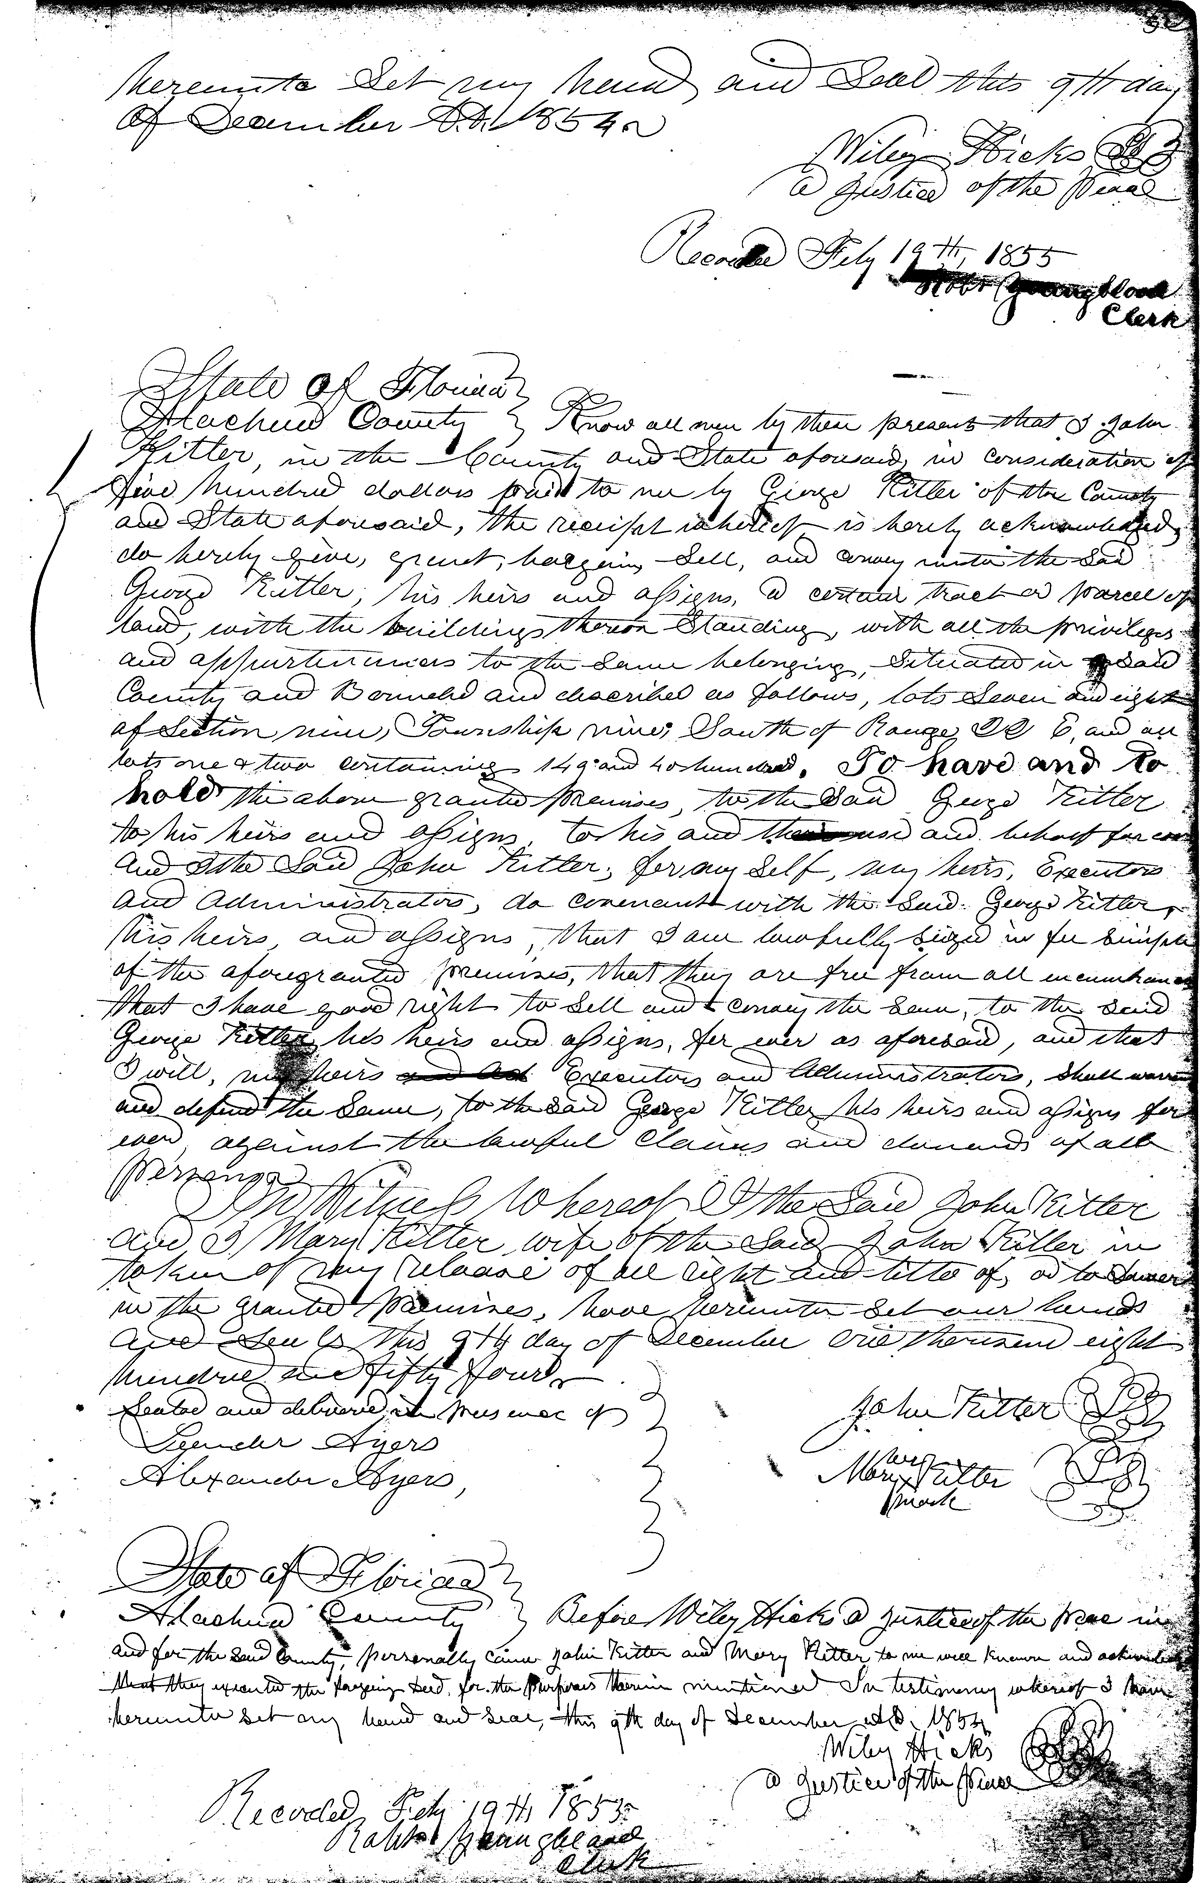 hereunto Set my hand and Seal this 9th day
of December A.D. 1854
Wiley Hicks
a Justice of the peace
Recorded Feby 19th, 1855
Robt Youngblood
Clerk
State of Florida
Alachua County Know all men by these presents that I John
Kitler, in the County and State aforesaid, in consideration of
five hundred dollars paid to me by George Kitler of the County
and State aforesaid, the receipt whereof is hereby acknowledged,
do hereby give, grant, bargain, Sell, and convey unto the Said
George Kitler, his heirs and assigns, a certain tract or parcel of
land, with the buildings thereon Standing, with all the privileges
and appurtenances to the Same belonging, Situated in Said
County and Bounded and described as follows, lots Seven and eight
of Section nine, Township nine, South of Range 22 E, and all
lots one & two containing 149 and 40 hundred. To have and to
hold the above granted premises, to the Said George Kitler
to his heirs and assigns, to his and their use and behoof for ever
And I the Said John Kitler, for my Self, my heirs, Executors
and Administrators, do covenant with the Said George Kitler,
his heirs, and assigns, that I am lawfully Seized in fee Simple
of the aforegranted premises, that they are free from all incumbrances
that I have good right to Sell and convey the Same, to the Said
George Kitler, his heirs and assigns, for ever as aforesaid, and that
I will, my heirs Executors and Administrators, Shall warrant
and defend the Same, to the Said George Kitler his heirs and assigns for
ever, against the lawful Claims and demands of all
persons
In Witness Whereof I the Said John Kitler
and I Mary Kitler wife of the Said John Kitler in
token of my release of all right and title of, or to Dower
in the granted premises, have hereunto Set our hands
and Seals this 9th day of December one thousand eight
hundred and fifty four
Sealed and delivered in presence of
John Kitler
Ayers
her
Mary X Kitler
mark
Alexander Ayers,
State of Florida
Alachua County Before Wiley Hicks a Justice of the peace in
and for the Said County, personally came John Kitler and Mary Kitler to me well known and acknowledged
that they executed the foregoing deed for the purposes therein mentioned In testimony whereof I have
hereunto Set my hand and Seal, this 9th day of December A.D. 1854
Wiley Hicks
a Justice of the peace
Recorded Feby 19th 1855
Robt Youngblood
Clerk